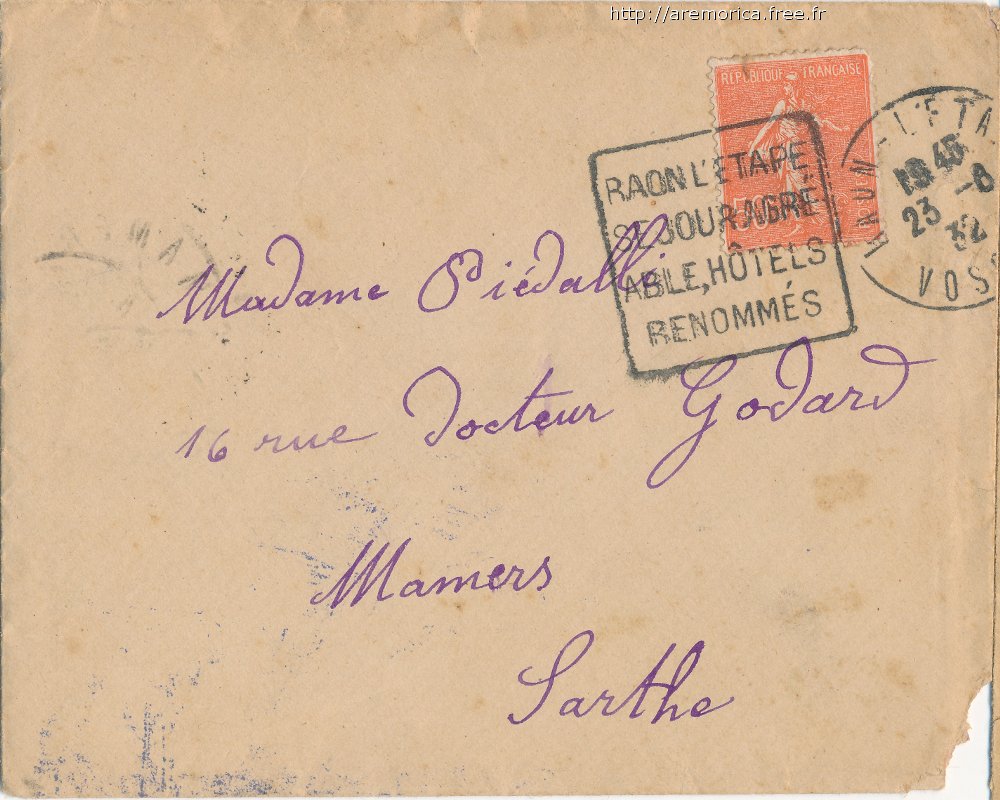 http://aremorica.free.fr
REPUBLIQUE FRANÇAISE
RAON L'ETAPE
SEJOUR AGRÉ
ABLE, HÔTELS
RENOMMÉS
L'ETA
19 45
23 -8
32
VOS
Madame Piédallu
16 rue Docteur Godard
Mamers
Sarthe